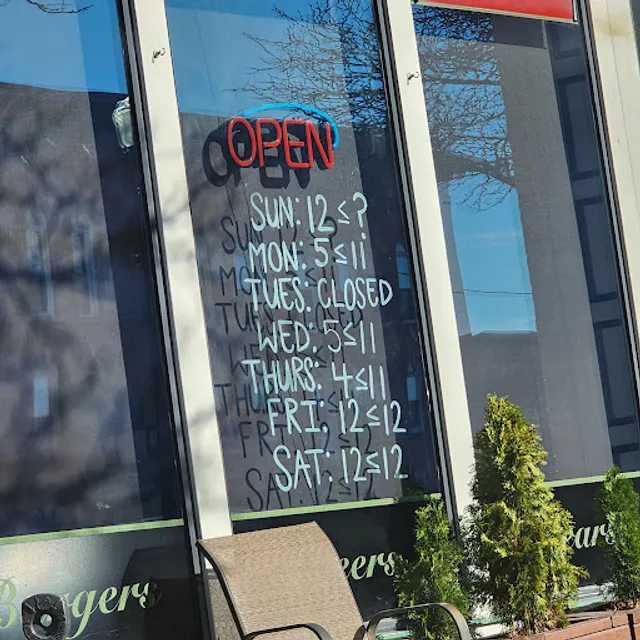 OPEN
SUN: 12 ≤ ?
MON: 5 ≤ 11
TUES: CLOSED
WED. 5 ≤ 11
THURS: 4 ≤ 11
FRI. 12 ≤ 12
SAT: 12 ≤ 12